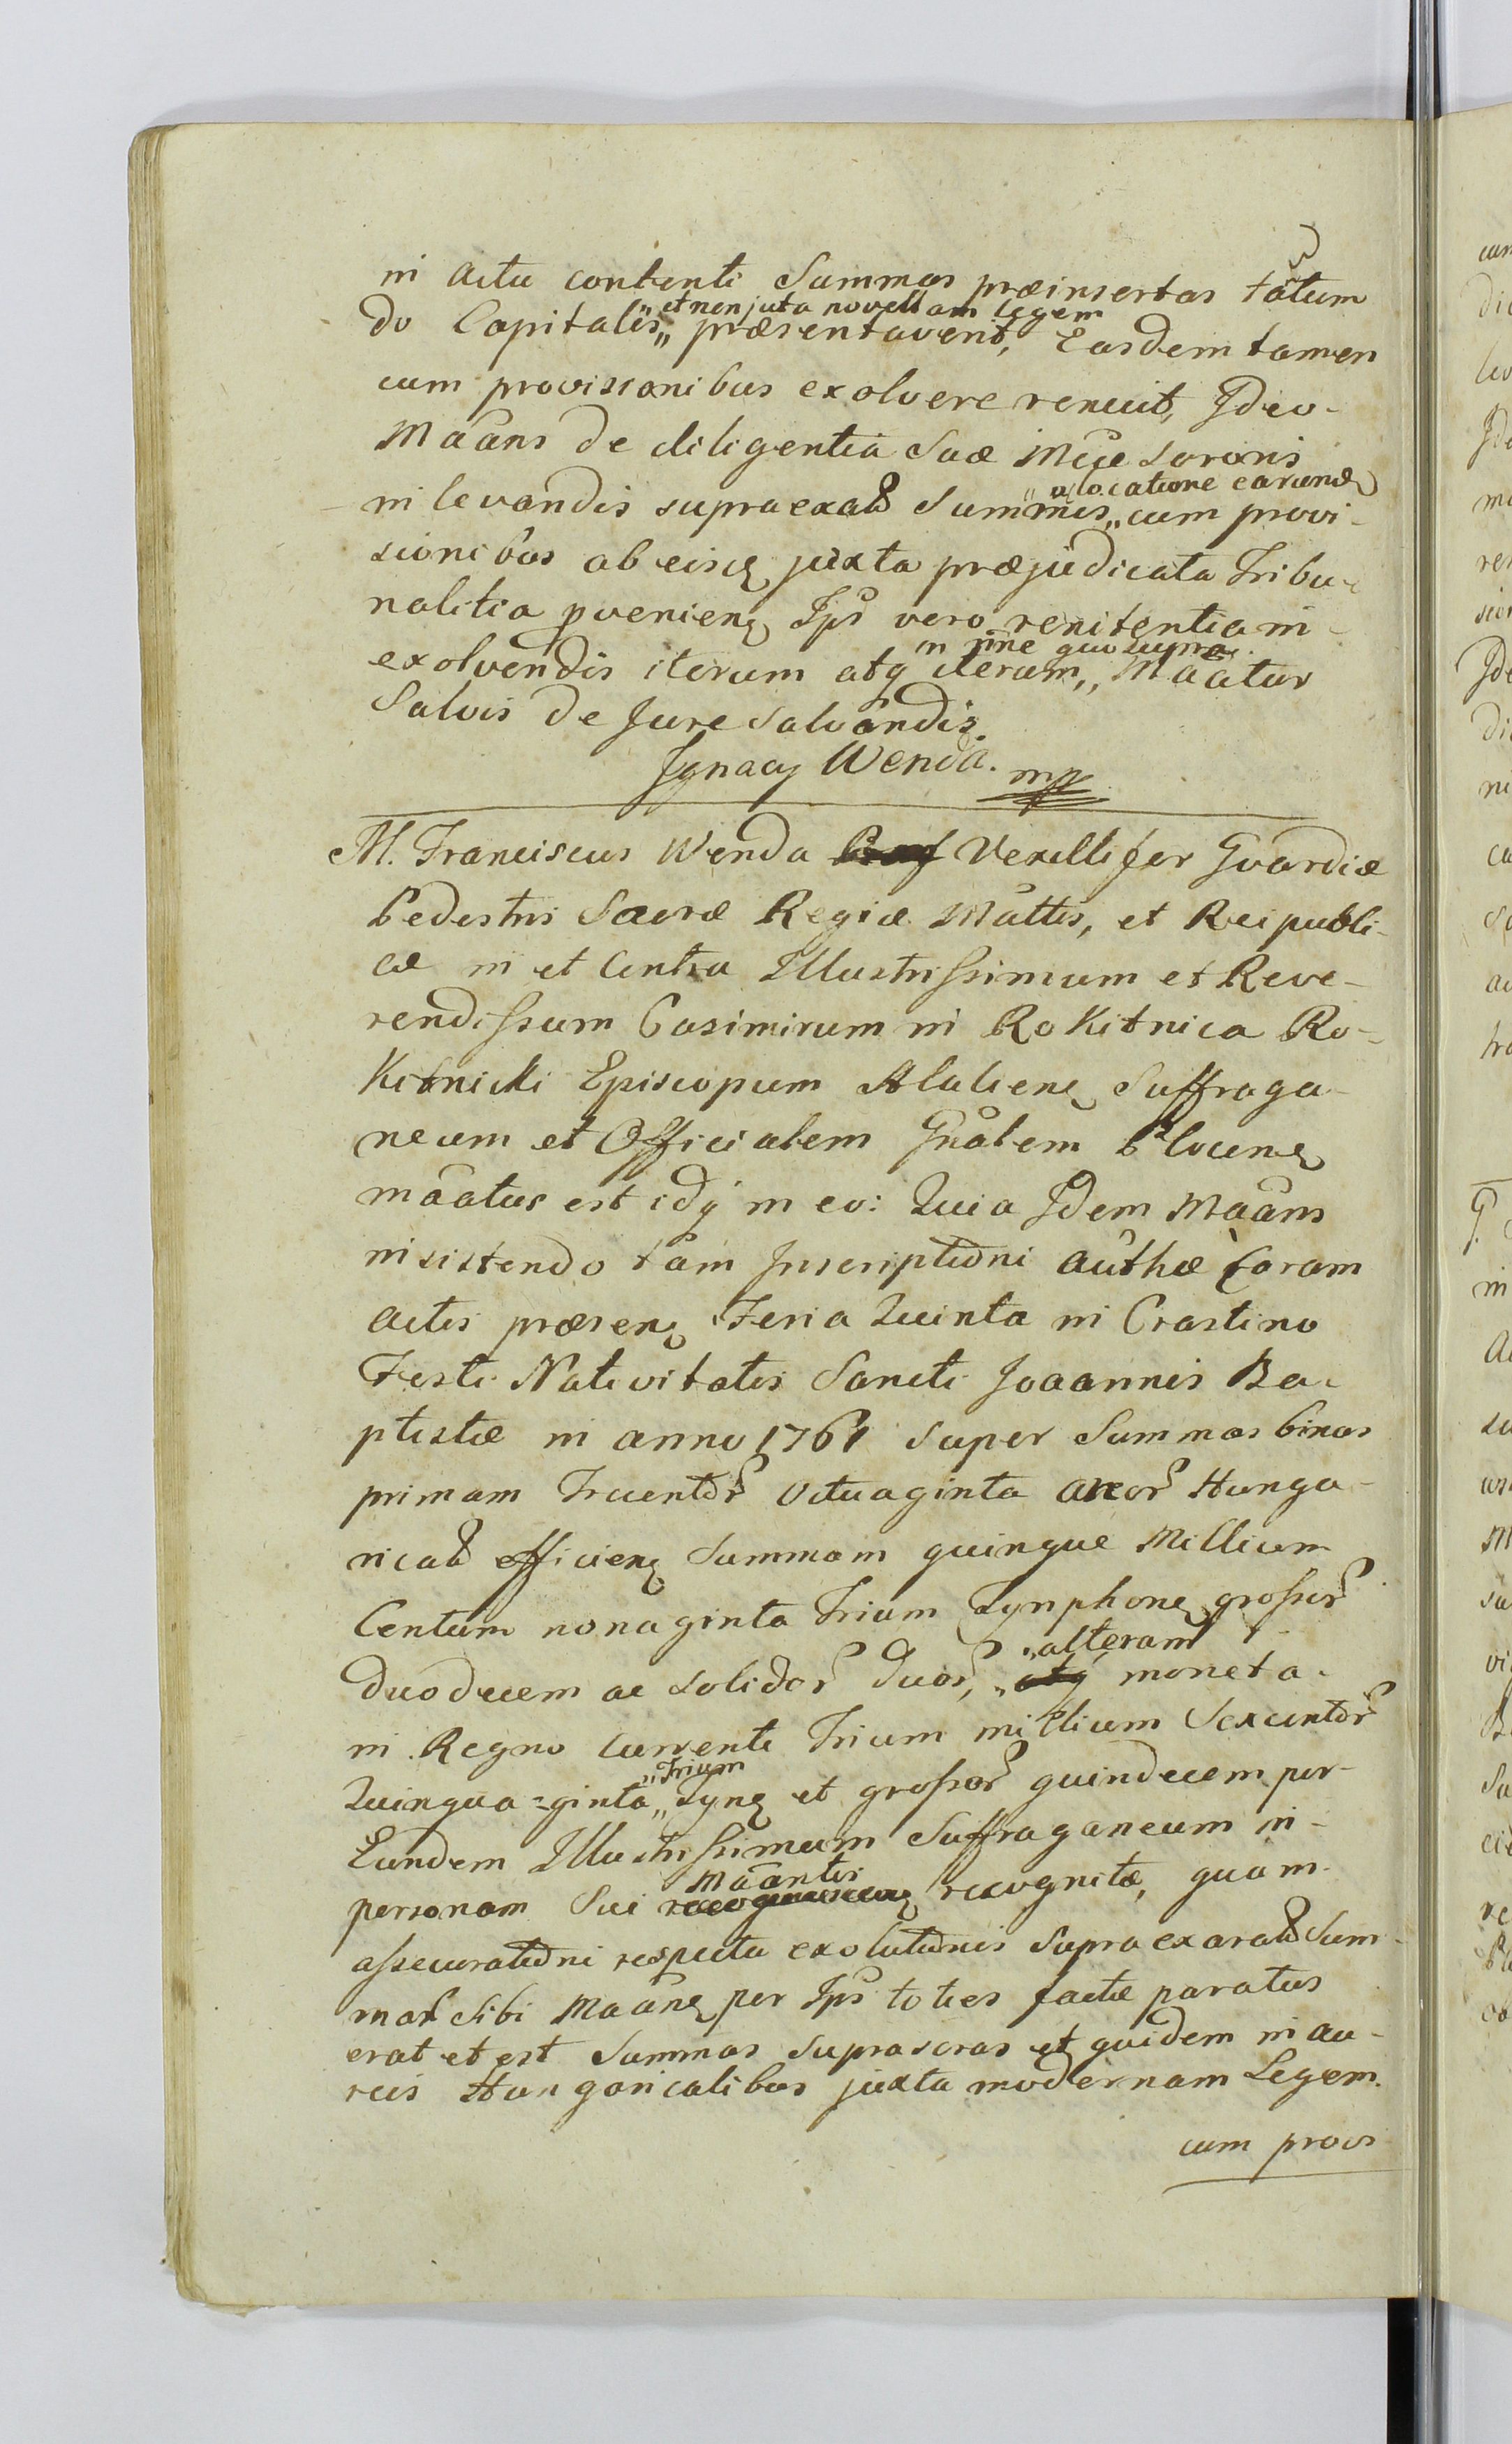 in actu contenti Summas præinsertas tātum
do Capitalis „et non juxta novellam legem„ præsentaverit, Easdem tamen
cum provisionibus exolvere renuit, Ideo-
Māans de diligentia Suæ Mciæ sororis
in levandis supra exatis Summis „a locatione earund„ cum provi-
sionibus ab eisq juxta præjudicata Tribu-
nalitia pvenienq Ips vero renitentia in
exolvendis iterum atq iterum„ in rine quo supra Māatur
Salvis de Jure Salvandis.
Ignacy Wenda. mp
M. Franciscus Wenda Vexillifer Gvardiæ
Pedestris Sacræ Regiæ Mattis, et Reipubli-
cæ in et Contra Illustrissimum et Reve-
rendissum Casimirum in Rokitnica Ro-
kitnicki Episcopum Alaliene Suffraga-
neum et Officialem Gnālem Plocene
māatus est idq in eo: Quia Idem Māans
insistendo tam Inscriptioni authæ Coram
actis præsenq Feria Quinta in Crastino
Festi Nativitatis Sancti Joaannis Ba-
ptistæ in anno 1761 super Summas binas
primam Trecentor Octuaginta aureor Hunga-
ricali efficienq Summam quinque Millium
Centum nonaginta Trium Tynphonq grossor
duodecem ac solidor duor, „alteram moneta
in Regno currenti Trium millium Sexcentor
Quinqua-ginta „Trium„ Tynq et grossor quindecem per
Eundem Illustrissimum Suffraganeum in
personam Sui Māantis recognitæ, quam
assecurationi respectu exolutionis Supra exarat Sum-
mar Sibi Māanq per Ips toties factæ paratus
erat et est Summas suprascras et quidem in au-
reis Hungaricalibus juxta modernam Legem.
cum provi-